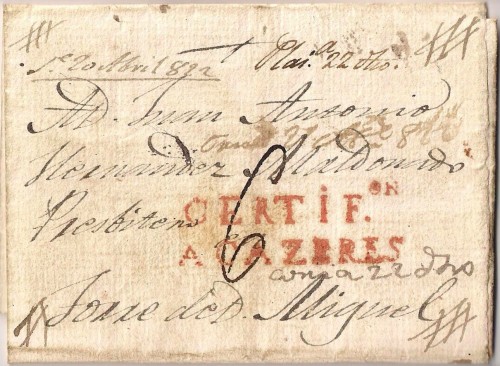 20 Abril 822 Plaz.ª 22 dho.
A D. Juan Antonio
Hernandez Maldonado
Presbitero
6
CERTIF.ON
A CAZERES
Coria 22 dho
Torre de D. Miguel